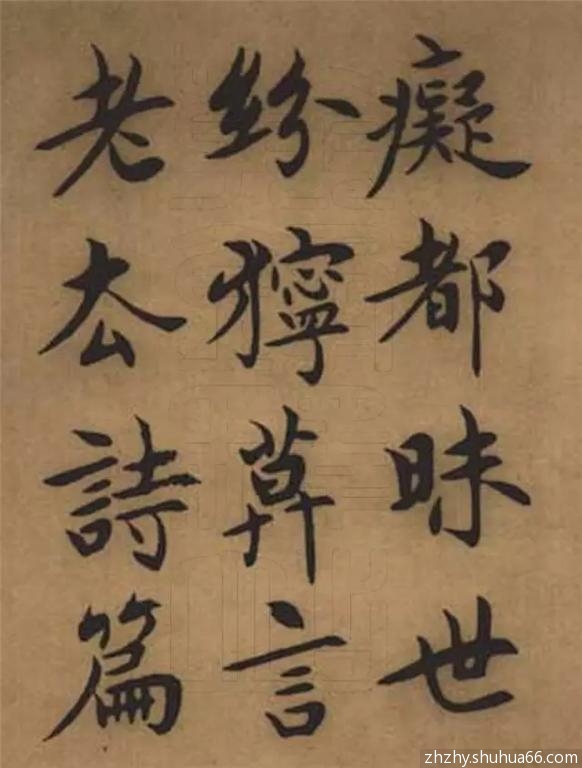 癡都昧世
紛獰莫言
老去詩篇
zhzhy.shuhua66.com